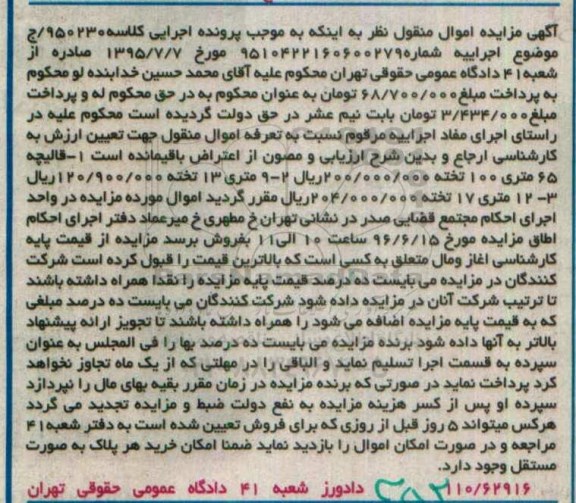 آگهی مزایده اموال منقول نظر به اینکه به موجب پرونده اجرایی کلاسه۹۵۰۲۳۰/ج
موضوع اجراییه شماره۹۵۱۰۴۲۲۱۶۰۶۰۰۲۷۹ مورخ ۱۳۹۵/۷/۷ صادره از
شعبه۴۱ دادگاه عمومی حقوقی تهران محکوم علیه آقای محمد حسین خدابنده لو محکوم
به پرداخت مبلغ۶۸/۷۰۰/۰۰۰ تومان به عنوان محکوم به در حق محکوم له و پرداخت
مبلغ۳/۴۳۴/۰۰۰ تومان بابت نیم عشر در حق دولت گردیده است محکوم علیه در
راستای اجرای مفاد اجراییه مرقوم نسبت به تعرفه اموال منقول جهت تعیین ارزش به
کارشناسی ارجاع و بدین شرح ارزیابی و مصون از اعتراض باقیمانده است ۱-قالیچه
۶۵ متری ۱۰۰ تخته ۲۰۰/۰۰۰/۰۰۰ریال ۲-۹ متری ۱۳ تخته ۱۲۰/۹۰۰/۰۰۰ریال
۳-۱۲ متری ۱۷ تخته ۲۰۴/۰۰۰/۰۰۰ریال مقرر گردید اموال مورده مزایده در واحد
اجرای احکام مجتمع قضایی صدر در نشانی تهران خ مطهری خ میرعماد دفتر اجرای احکام
اطاق مزایده مورخ ۹۶/۶/۱۵ ساعت ۱۰ الی۱۱ بفروش برسد مزایده از قیمت پایه
کارشناسی اغاز ومال متعلق به کسی است که بالاترین قیمت را قبول کرده است شرکت
کنندگان در مزایده می بایست ده درصد قیمت پایه مزایده را نقدا همراه داشته باشند
تا ترتیب شرکت آنان در مزایده داده شود شرکت کنندگان می بایست ده درصد مبلغی
که به قیمت پایه مزایده اضافه می شود را همراه داشته باشند تا تجویز ارائه پیشنهاد
بالاتر به آنها داده شود برنده مزایده می بایست ده درصد بها را فی المجلس به عنوان
سپرده به قسمت اجرا تسلیم نماید و الباقی را در مهلتی که از یک ماه تجاوز نخواهد
کرد پرداخت نماید در صورتی که برنده مزایده در زمان مقرر بقیه بهای مال را نپردازد
سپرده او پس از کسر هزینه مزایده به نفع دولت ضبط و مزایده تجدید می گردد
هرکس میتواند ۵ روز قبل از روزی که برای فروش تعیین شده است به دفتر شعبه۴۱
مراجعه و در صورت امکان اموال را بازدید نماید ضمنا امکان خرید هر پلاک به صورت
مستقل وجود دارد.
۱۱۰/۶۲۹۱۶ دادورز شعبه ۴۱ دادگاه عمومی حقوقی تهران